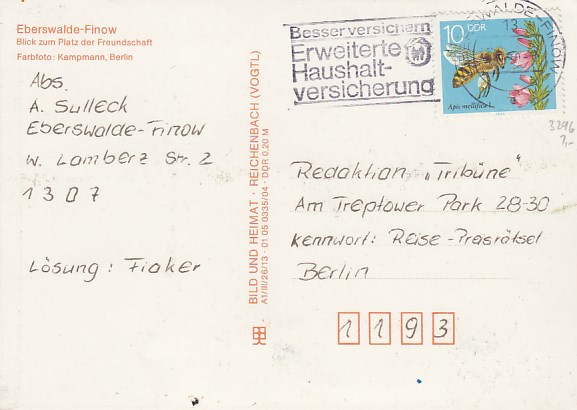 Eberswalde-Finow
Blick zum Platz der Freundschaft
Farbfoto: Kampmann, Berlin
Abs.
A. Sulleck
Eberswalde-Finow
W. Lamberz Str. 2
1307
Lösung: Fiaker
BILD UND HEIMAT · REICHENBACH (VOGTL)
A1/III/26/13 · 01 05 0335/04 · DDR 0,20 M
Besser versichern
Erweiterte
Haushalt-
versicherung
10 DDR
Apis mellifica L.
WALDE-FINOW
13
3296
7,-
Redaktion „Tribüne"
Am Treptower Park 28-30
Kennwort: Reise-Preisrätsel
Berlin
1193